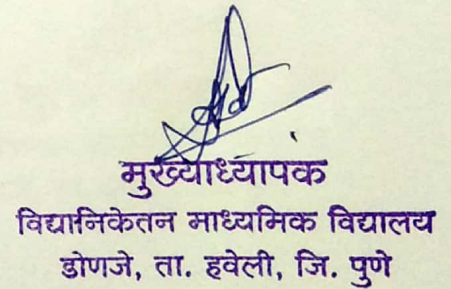 मुख्याध्यापक
विद्यानिकेतन माध्यमिक विद्यालय
डोणजे, ता. हवेली, जि. पुणे